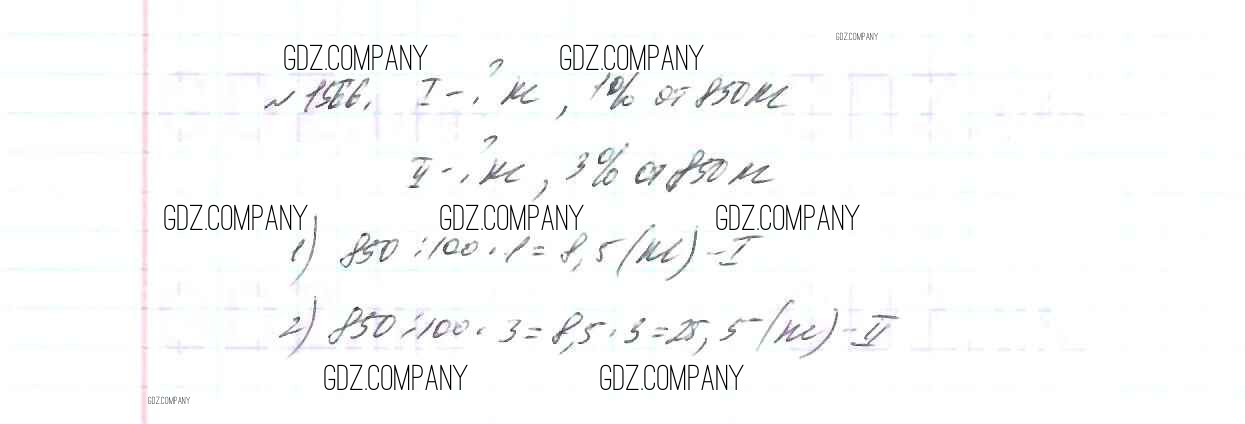 GDZ.COMPANY
GDZ.COMPANY GDZ.COMPANY
№ 1566. I - ? кг, 1% от 850 кг
II - ? кг, 3% от 850 кг
GDZ.COMPANY GDZ.COMPANY GDZ.COMPANY
1) 850 : 100 · 1 = 8,5 (кг) - I
2) 850 : 100 · 3 = 8,5 · 3 = 25,5 (кг) - II
GDZ.COMPANY GDZ.COMPANY
GDZ.COMPANY